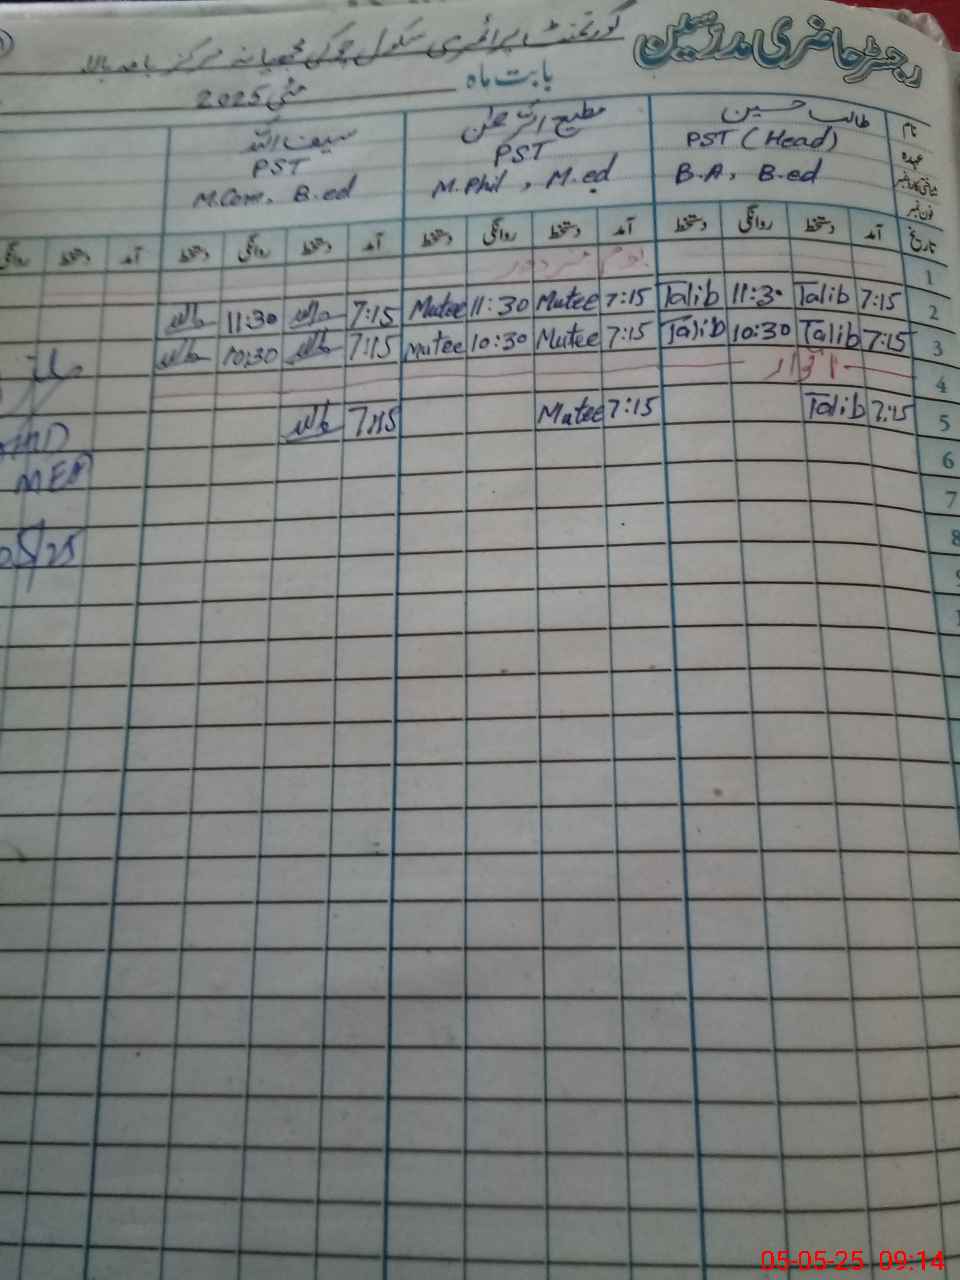 رجسٹر حاضری مدرسین
گورنمنٹ پرائمری سکول چوکی
بابت ماہ مئی 2025
نام طالب حسین مطیع الرحمن سیف اللہ
عہدہ PST (Head) PST PST
B.A, B.ed M.Phil, M.ed M.Com, B.ed
فون نمبر
تاریخ آمد دستخط روانگی دستخط آمد دستخط روانگی دستخط آمد دستخط روانگی دستخط آمد دستخط روانگی
1 یوم مزدور
2 7:15 Talib 11:30 Talib 7:15 Mutee 11:30 Mutee 7:15 11:30
3 7:15 Talib 10:30 Talib 7:15 Mutee 10:30 Mutee 7:15 10:30
4 اتوار
5 7:15 Talib 7:15 Mutee 7:15
6
7
8
05-05-25 09:14